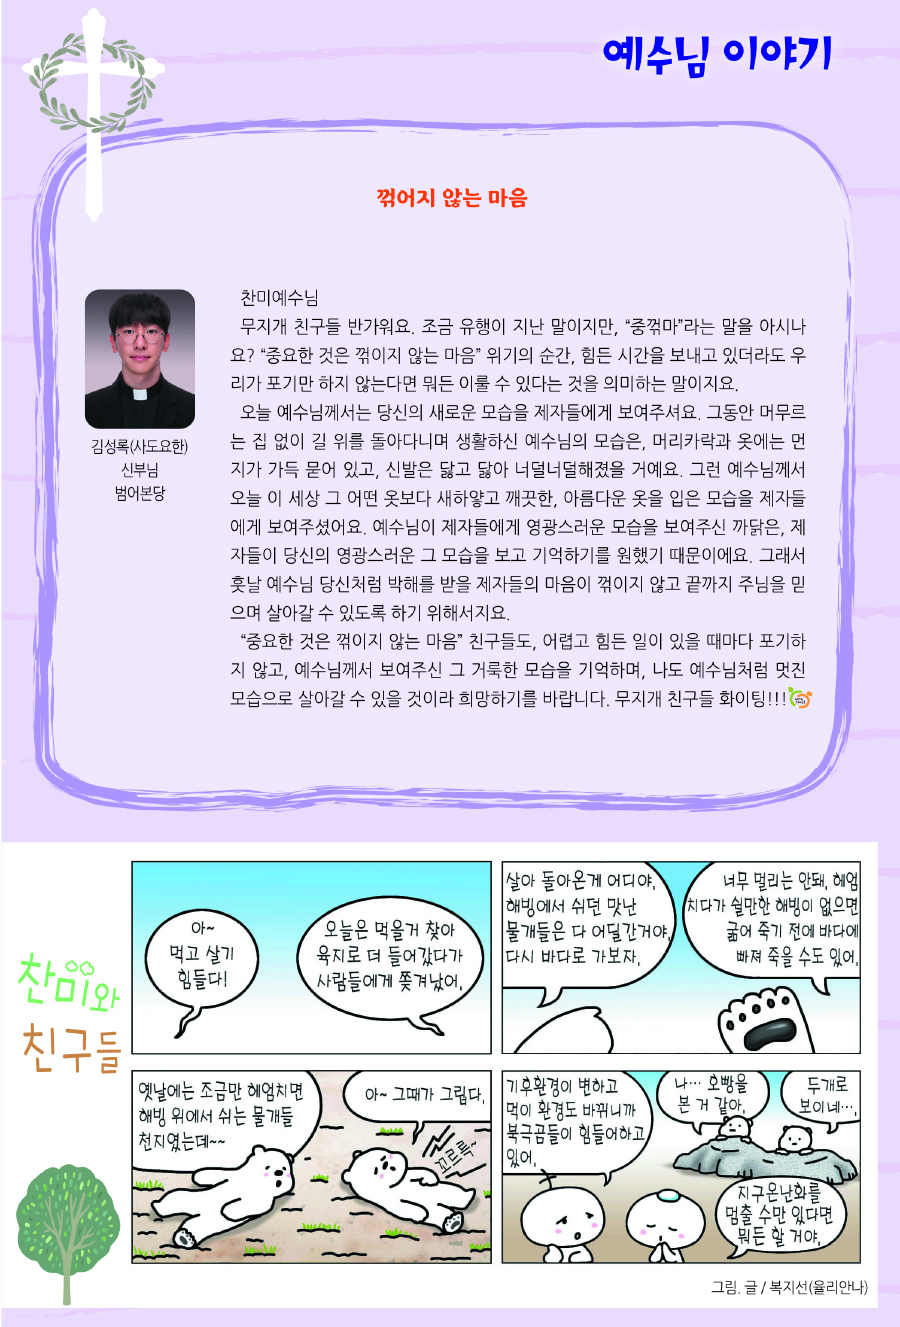 예수님 이야기
꺾어지 않는 마음
찬미예수님
무지개 친구들 반가워요. 조금 유행이 지난 말이지만, “중꺾마”라는 말을 아시나
요? “중요한 것은 꺾이지 않는 마음” 위기의 순간, 힘든 시간을 보내고 있더라도 우
리가 포기만 하지 않는다면 뭐든 이룰 수 있다는 것을 의미하는 말이지요.
오늘 예수님께서는 당신의 새로운 모습을 제자들에게 보여주셔요. 그동안 머무르
는 집 없이 길 위를 돌아다니며 생활하신 예수님의 모습은, 머리카락과 옷에는 먼
지가 가득 묻어 있고, 신발은 닳고 닳아 너덜너덜해졌을 거예요. 그런 예수님께서
오늘 이 세상 그 어떤 옷보다 새하얗고 깨끗한, 아름다운 옷을 입은 모습을 제자들
에게 보여주셨어요. 예수님이 제자들에게 영광스러운 모습을 보여주신 까닭은, 제
자들이 당신의 영광스러운 그 모습을 보고 기억하기를 원했기 때문이에요. 그래서
훗날 예수님 당신처럼 박해를 받을 제자들의 마음이 꺾이지 않고 끝까지 주님을 믿
으며 살아갈 수 있도록 하기 위해서지요.
“중요한 것은 꺾이지 않는 마음” 친구들도, 어렵고 힘든 일이 있을 때마다 포기하
지 않고, 예수님께서 보여주신 그 거룩한 모습을 기억하며, 나도 예수님처럼 멋진
모습으로 살아갈 수 있을 것이라 희망하기를 바랍니다. 무지개 친구들 화이팅!!!
김성록(사도요한)
신부님
범어본당
찬미와
친구들
아~
먹고 살기
힘들다!
오늘은 먹을거 찾아
육지로 더 들어갔다가
사람들에게 쫓겨났어.
살아 돌아온게 어디야.
해빙에서 쉬던 맛난
물개들은 다 어딜간거야.
다시 바다로 가보자.
너무 멀리는 안돼. 헤엄
치다가 쉴만한 해빙이 없으면
굶어 죽기 전에 바다에
빠져 죽을 수도 있어.
옛날에는 조금만 헤엄치면
해빙 위에서 쉬는 물개들
천지였는데~~
아~ 그때가 그립다.
꼬르륵~
기후환경이 변하고
먹이 환경도 바뀌니까
북극곰들이 힘들어하고
있어.
나… 호빵을
본 거 같아.
두개로
보이네….
지구온난화를
멈출 수만 있다면
뭐든 할 거야.
그림. 글 / 복지선(율리안나)